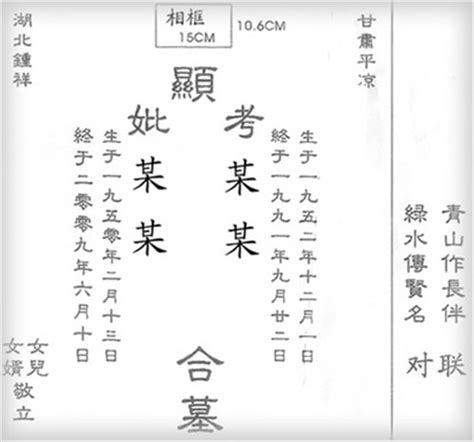 相框
15CM
10.6CM
青山作長伴
綠水傳賢名
对联
甘肅平凉
顯
考
某某
生于一九五二年十二月一日
終于一九九一年九月廿二日
妣
某某
生于一九五〇年二月十三日
終于二零零九年六月十日
合墓
湖北鍾祥
女兒
女婿
敬立